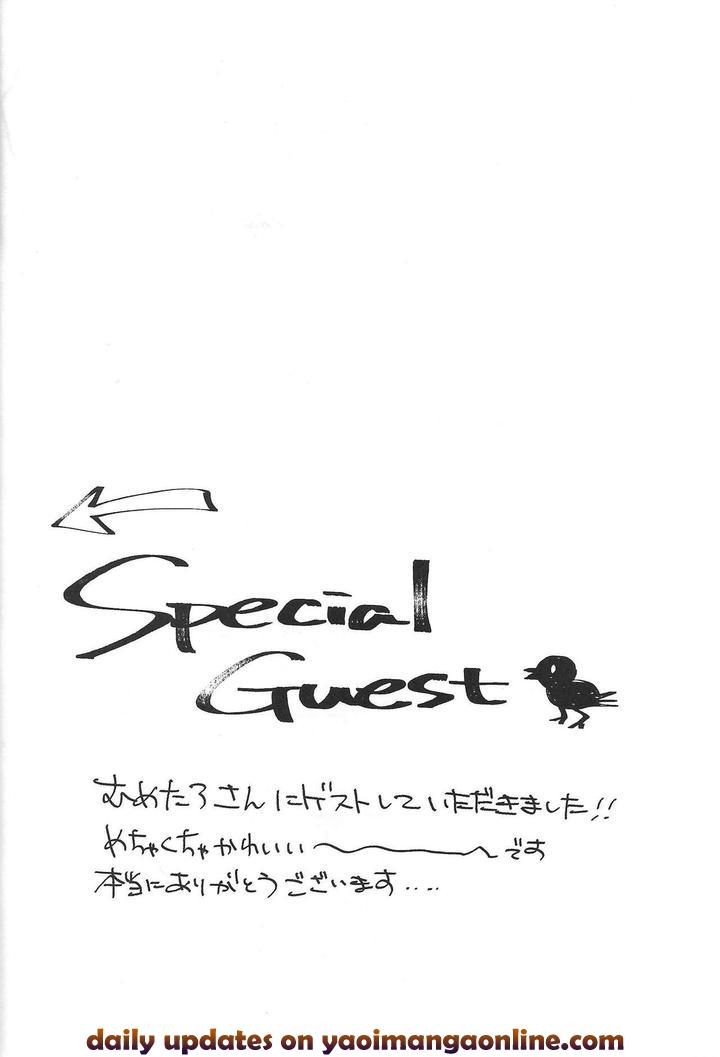 Special
Guest
むめたろさんにゲストしていただきました!!
めちゃくちゃかわいい〜〜です
本当にありがとうございます....
daily updates on yaoimangaonline.com